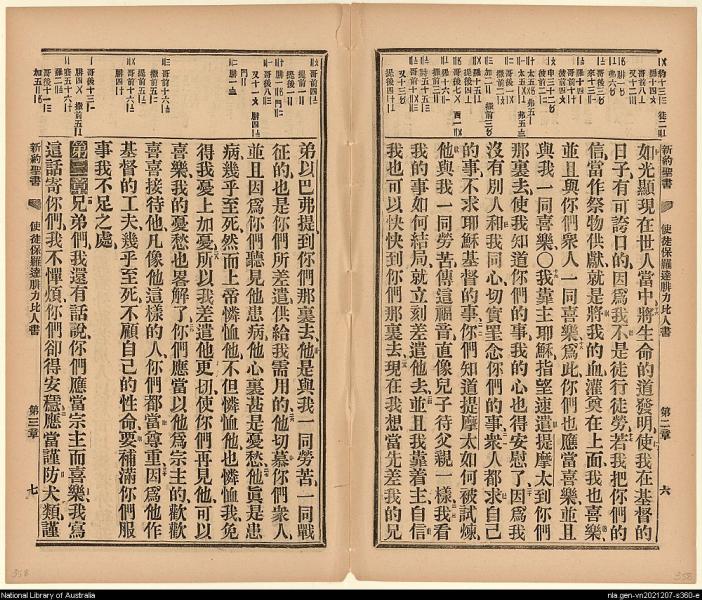 新約聖書
使徒保羅達腓力比人書
第二章
六
如光顯現在世人當中將生命的道發明使我在基督的
日子有可誇口的因爲我不是徒行徒勞若我把你們的
信當作祭物供獻就是將我的血灌奠在上面我也喜樂
並且與你們衆人一同喜樂爲此你們也應當喜樂並且
與我一同喜樂〇我靠主耶穌指望速遣提摩太到你們
那裏去使我知道你們的事我的心也得安慰了因爲我
沒有別人和我同心切實罣念你們的事衆人都求自己
的事不求耶穌基督的事你們知道提摩太如何被試煉
他與我一同勞苦傳這福音直像兒子待父親一樣我看
我的事如何結局就立刻差遣他去並且我靠着主自信
我也可以快快到你們那裏去現在我想當先差我的兄
弟以巴弗提到你們那裏去他是與我一同勞苦一同戰
征的也是你們所差遣供給我需用的他切慕你們衆人
並且因爲你們聽見他患病他心裏甚是憂愁他眞是患
病幾乎至死然而上帝憐恤他不但憐恤他也憐恤我免
得我憂上加憂所以我差遣他更切使你們再見他可以
喜樂我的憂愁也畧解了你們應當以他爲宗主的歡歡
喜喜接待他凡像他這樣的人你們都當尊重因爲他作
基督的工夫幾乎至死不顧自己的性命要補滿你們服
事我不足之處
第三章兄弟們我還有話說你們應當宗主而喜樂我寫
這話寄你們我不憚煩你們卻得安穩應當謹防犬類謹
新約聖書
使徒保羅達腓力比人書
第三章
七
358
358
National Library of Australia
nla.gen-vn2021207-s360-e